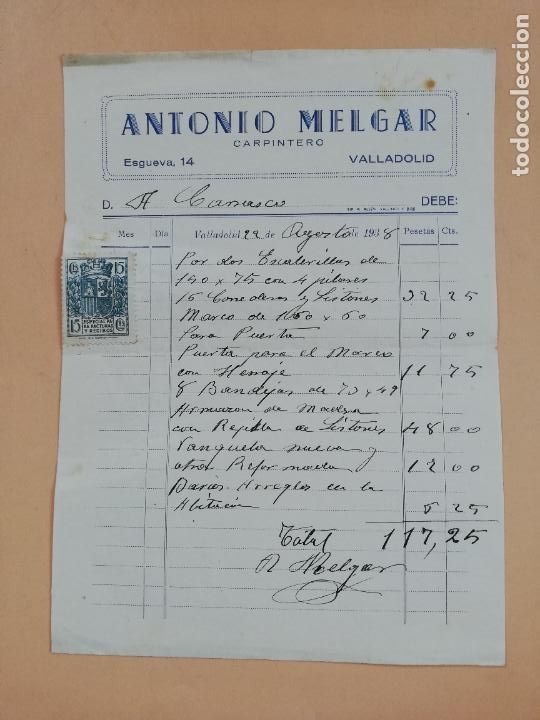 ANTONIO MELGAR
CARPINTERO
Esgueva, 14 VALLADOLID
D. A Carrasco DEBE:
Mes Día Valladolid 22 de Agosto de 1938 Pesetas Cts.
Por dos Escalerillas de
150 x 75 con 4 pilones
16 Comederos y Listones 32 25
Marco de 1060 x 60
Para Puerta 7 00
Puerta para el Marco
con Herraje 11 75
8 Bandejas de 73 x 49
Armazon de Madera
con Rejilla de Listones 48 00
Vanqueta nueva y
otra Reformada 12 00
Barios Arreglos en la
Abitación 6 25
Total 117,25
A Melgar
Cts 15
15 Cts
ESPECIAL PARA FACTURAS Y RECIBOS
todocoleccion.net